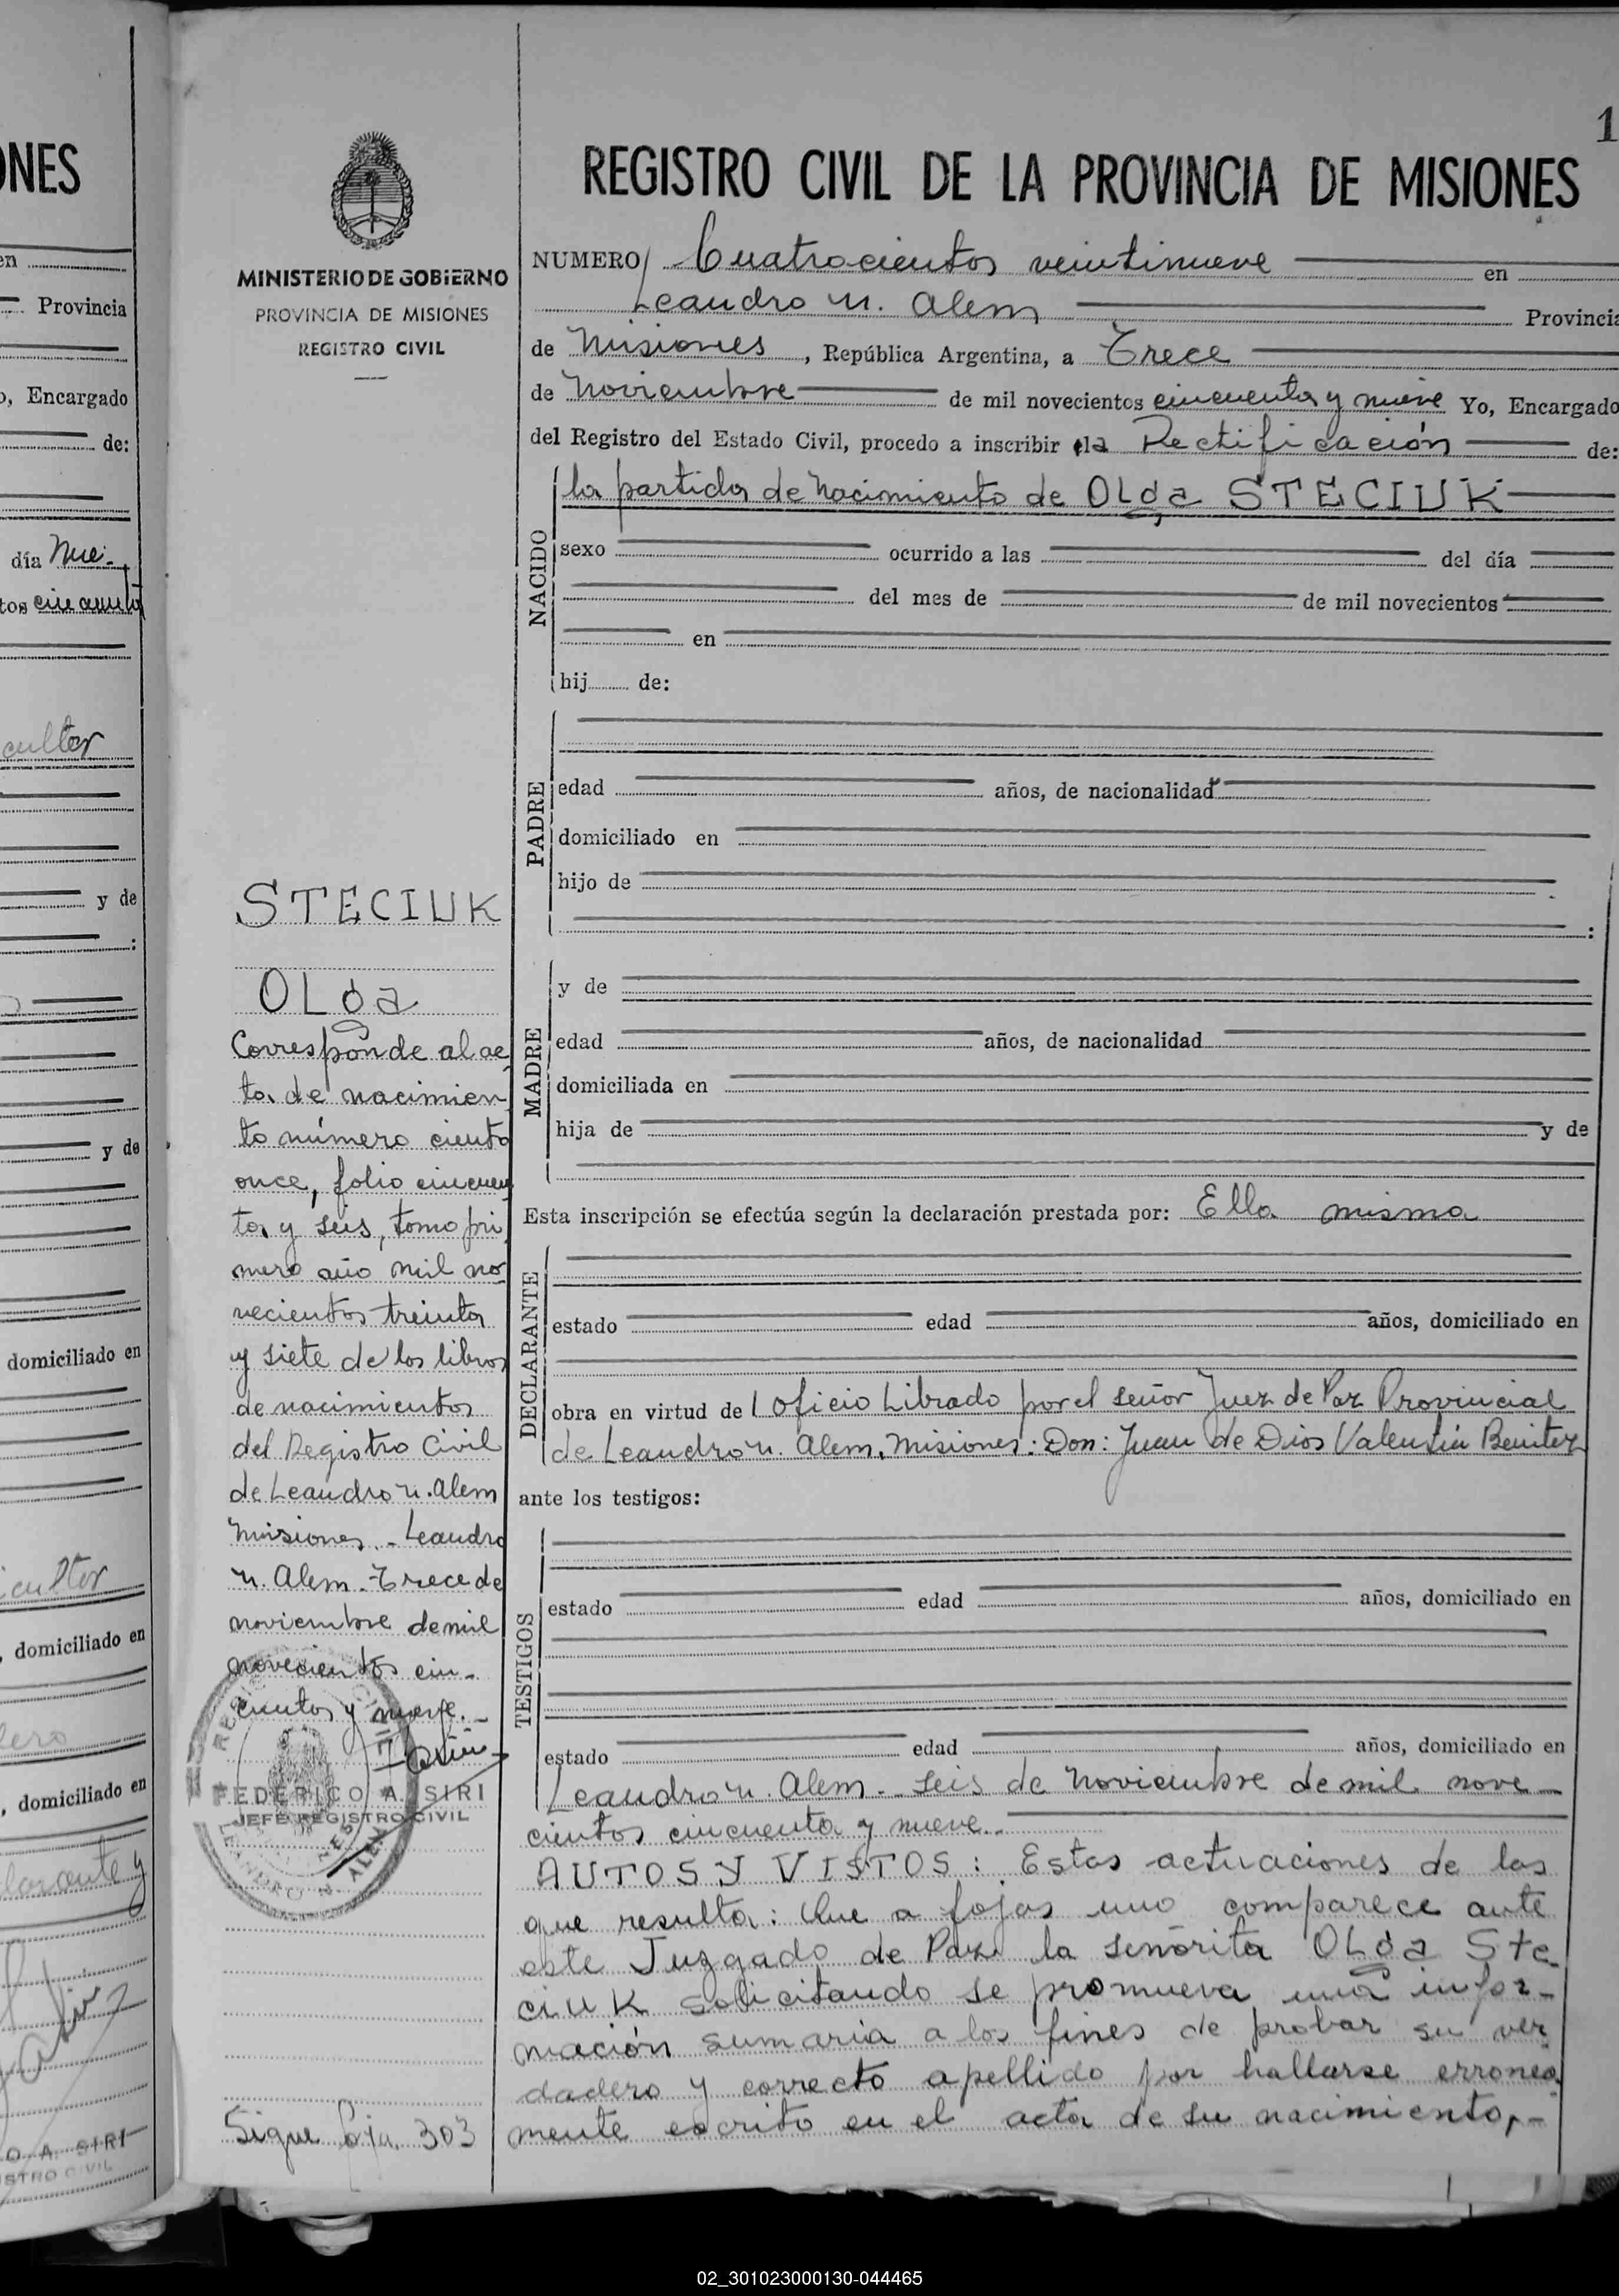 ONES
en
Provincia
o, Encargado
de:
día Nue-
tos cincuenta
cultor
y de
:
y de
domiciliado en
icultor
, domiciliado en
lero
, domiciliado en
larante y
O A. SIRI
ISTRO CIVIL
MINISTERIO DE GOBIERNO
PROVINCIA DE MISIONES
REGISTRO CIVIL
STECIUK
OLga
Corresponde al ac
ta de nacimien
to número ciento
once, folio cincuen
ta y seis, tomo pri
mero año mil no
vecientos treinta
y siete de los libros
de nacimientos
del Registro Civil
de Leandro N. Alem
Misiones.- Leandro
N. Alem. Trece de
noviembre de mil
novecientos cin-
cuenta y nueve.-
FEDERICO A. SIRI
JEFE REGISTRO CIVIL
Sigue foja. 303
1
REGISTRO CIVIL DE LA PROVINCIA DE MISIONES
NUMERO Cuatrocientos veintinueve en
Leandro N. Alem Provincia
de Misiones, República Argentina, a Trece
de Noviembre de mil novecientos cincuenta y nueve Yo, Encargado
del Registro del Estado Civil, procedo a inscribir la Rectificación de:
NACIDO
la partida de Nacimiento de OLga STECIUK
sexo ocurrido a las del día
del mes de de mil novecientos
en
hij de:
PADRE
edad años, de nacionalidad
domiciliado en
hijo de
:
MADRE
y de
edad años, de nacionalidad
domiciliada en
hija de y de
Esta inscripción se efectúa según la declaración prestada por: Ella misma
DECLARANTE
estado edad años, domiciliado en
obra en virtud del Oficio Librado por el señor Juez de Paz Provincial
de Leandro N. Alem, Misiones: Don: Juan de Dios Valentín Benitez
ante los testigos:
TESTIGOS
estado edad años, domiciliado en
estado edad años, domiciliado en
Leandro N. Alem.- Seis de Noviembre de mil nove-
cientos cincuenta y nueve.-
AUTOS Y VISTOS: Estas actuaciones de las
que resulta: Que a fojas uno comparece ante
este Juzgado de Paz la señorita OLga Ste
ciuK solicitando se promueva una infor-
mación sumaria a los fines de probar su ver
dadero y correcto apellido por hallarse erronea
mente escrito en el acta de su nacimiento,-
02_301023000130-044465